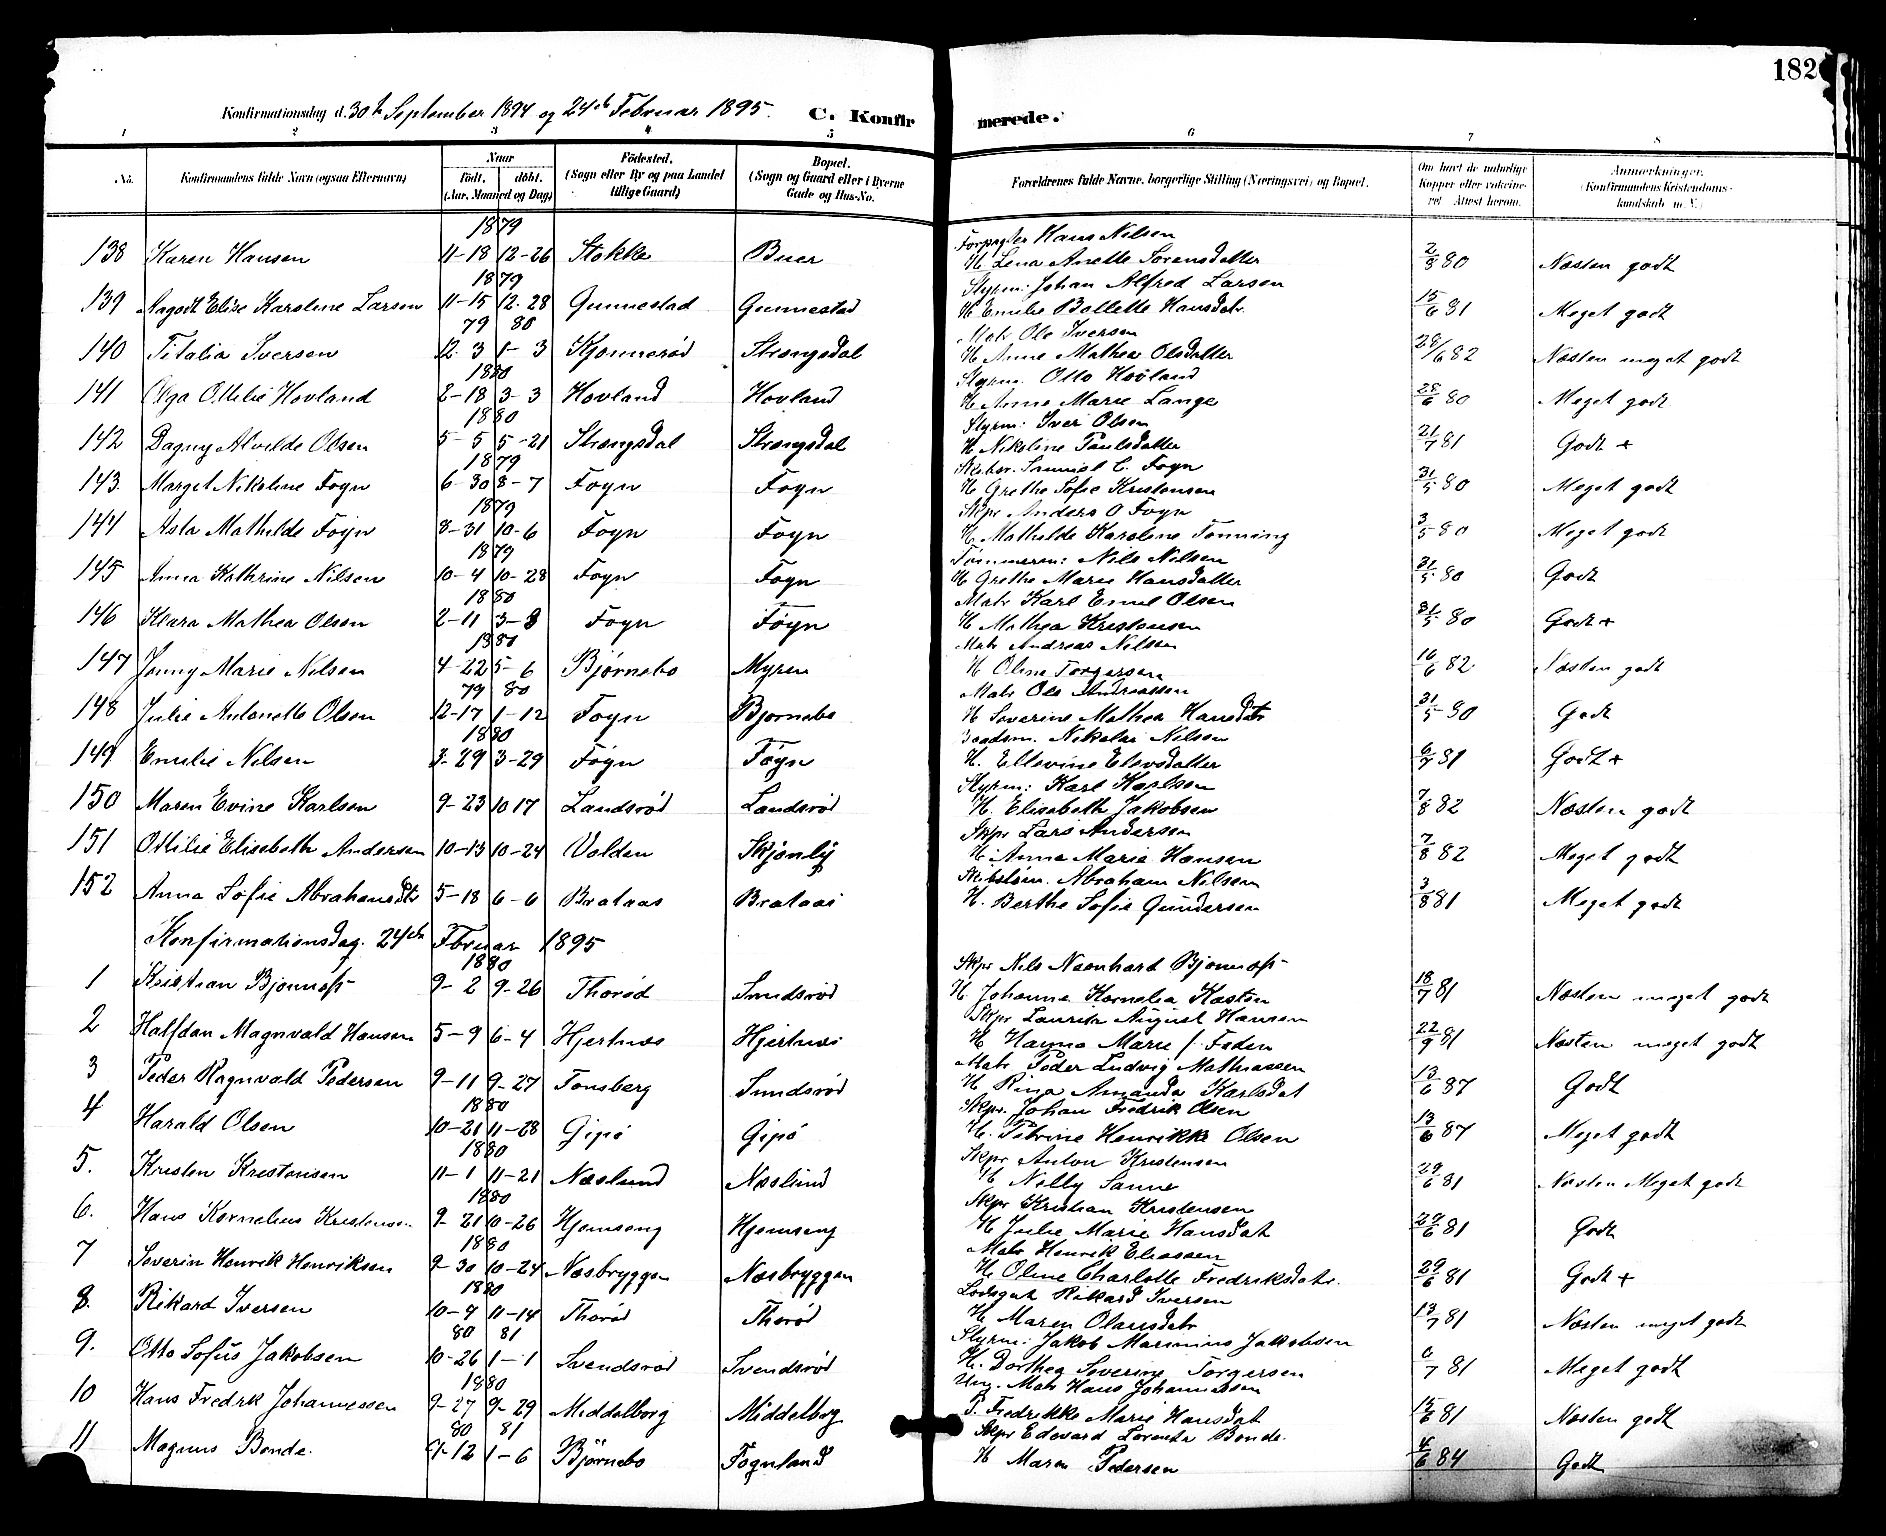 182
Konfirmationsdag d. 30te September 1894 og 24de Februar 1895. C. Konfirmerede.
1 2 3 4 5 6 7 8
No. Konfirmandens fulde Navn (ogsaa Efternavn) Naar Födt. döbt. (Aar, Maaned og Dag) Födested. (Sogn eller By og paa Landet tillige Gaard) Bopæl. (Sogn og Gaard eller i Byerne Gade og Hus-No. Forældrenes fulde Navne, borgerlige Stilling (Næringsvei) og Bopæl. Om havt de naturlige Kopper eller vakcineret. Attest herom. Anmærkninger. (Konfirmandens Kristendomskundskab m. V.)
1879 Forpagter Hans Nilsen
138 Karen Hansen 11-18 12-26 Stokke Buer H. Lena Anette Sørensdatter 2/8 80 Næsten godt
1879 Styrm: Johan Alfred Larsen
139 Aagodt Elise Karoline Larsen 11-15 12-28 Gunnestad Gunnestad H Emilie Bollette Hansdatr. 15/6 81 Meget godt
79 80 Matr Ole Iversen
140 Titalia Iversen 12-3 1-3 Kjønnerød Strængsdal H Anne Mathea Olsdatter 28/6 82 Næsten meget godt
1880 Styrm. Otto Hovland
141 Olga Ottilie Hovland 2-18 3-3 Hovland Hovland H Anne Marie Lange 28/6 80 Meget godt
1880 Styrm: Iver Olsen
142 Dagny Alvilde Olsen 5-5 5-21 Strængsdal Strængsdal H Nikoline Paulsdatter 21/7 81 Godt +
1879 Samuel C. Føyn
143. Marget Nikoline Føyn 6-30 8-7 Føyn Føyn H Grethe Sofie Kristensen 31/5 80 Meget godt
1879 Skpr Anders O Føyn
144 Asta Mathilde Føyn 8-31 10-6 Føyn Føyn H Mathilde Karoline Tønning 3/5 80 Meget godt
1879 Tømmerm: Nils Nilsen
145 Anna Kathrine Nilsen 10-4 10-28 Føyn Føyn H Grethe Marie Hansdatter 31/5 80 Godt
1880 Matr Karl Emil Olsen
146 Klara Mathea Olsen 2-11 3-8 Føyn Føyn H Mathea Kristensen 31/5 80 Godt +
1880 Matr Andreas Nilsen
147 Jenny Marie Nilsen 4-22 5-6 Bjørnebo Myren H Oline Torgersen 16/6 82 Næsten godt
79 80 Matr Ole Andreassen
148 Julie Antonette Olsen 12-17 1-12 Føyn Bjørnebo H Severine Mathea Hansdatr 31/5 80 Godt
1880 Nikolai Nilsen
149 Emilie Nilsen 3-29 3-29 Føyn Føyn H. Ellevine Elevsdatter 6/7 81 Godt +
Styrm: Karl Karlsen
150 Maren Evine Karlsen 9-23 10 17 Landsrød Landsrød H. Elisabeth Jakobsen 7/8 82 Næsten godt
Skpr Lars Andersen
151 Ottilie Elisabeth Andersen 10-13 10-24 Volden Skjønly H. Anne Marie Hansen 7/8 82 Meget godt
Abraham Nilsen
152 Anna Sofie Abrahamsdtr 5-18 6-6 Brataas Brataas H. Berthe Sofie Gundersen 3/8 81 Meget godt
Konfirmationsdag. 24de Fbruar 1895
1880 Skpr Nils Bjønness
1 Kristian Bjønness 9-2 9-26 Thorød Sundsrød H. Johanne Kornelia Kasten 18/7 81 Næsten meget godt
Skpr Laurits August Hansen
2 Halfdan Magnvald Hansen 5-9 6-4 Hjertnæs Hjertnæs H Hanna Marie f. Feden 22/9 81 Næsten meget godt
Matr Peder Ludvig Mathiassen
3 Peder Ragnvald Pedersen 9-11 9-27 Tønsberg Sundsrød H Rina Amanda Karlsdat 13/6 87 Godt
1880 Skpr. Johan Fredrik Olsen
4 Harald Olsen 10-21 11-28 Gipø Gipø H. Petrine Henrikke Olsen 13/6 87 Meget godt
1880 Skpr Anton Kristensen
5. Kristen Kristensen 11-1 11-21 Næslund Næslund H Nelly Sanne 29/6 81 Næsten Meget godt
1880 Skpr Kristian Kristensen
6. Hans Kornelius Kristensen 9-21 10-26 Hjemseng Hjemseng H Julie Marie Hansdat 29/6 81 Godt
1880 Matr Henrik Eliassen
7 Severin Henrik Henriksen 9-30 10-24 Næsbryggen Næsbryggen H. Oline Charlotte Fredriksdatr. 29/6 81 Godt +
1880 Lodsgut Rikard Iversen
8. Rikard Iversen 10-4 11-14 Thorød Thorød H Maren Olausdatr 13/7 81 Næsten meget godt
80 81 Styrm: Jakob Marinius Jakobsen
9. Otto Sofus Jakobsen 10-26 1-1 Svendsrød Svendsrød H. Dorthea Severine Torgersen 6/7 81 Meget godt
1880 Ung. Matr Hans Johannessen
10 Hans Fredrk Johannessen 9-27 9-29 Middelborg Middelborg P. Fredrikke Marie Hansdat 15/6 81 Næsten godt
80 81 Skpr Edevard Lorents Bonde.
11 Magnus Bonde. 9-12 1-6 Bjørnebo Føynland H Maren Pedersen 4/6 84 Godt